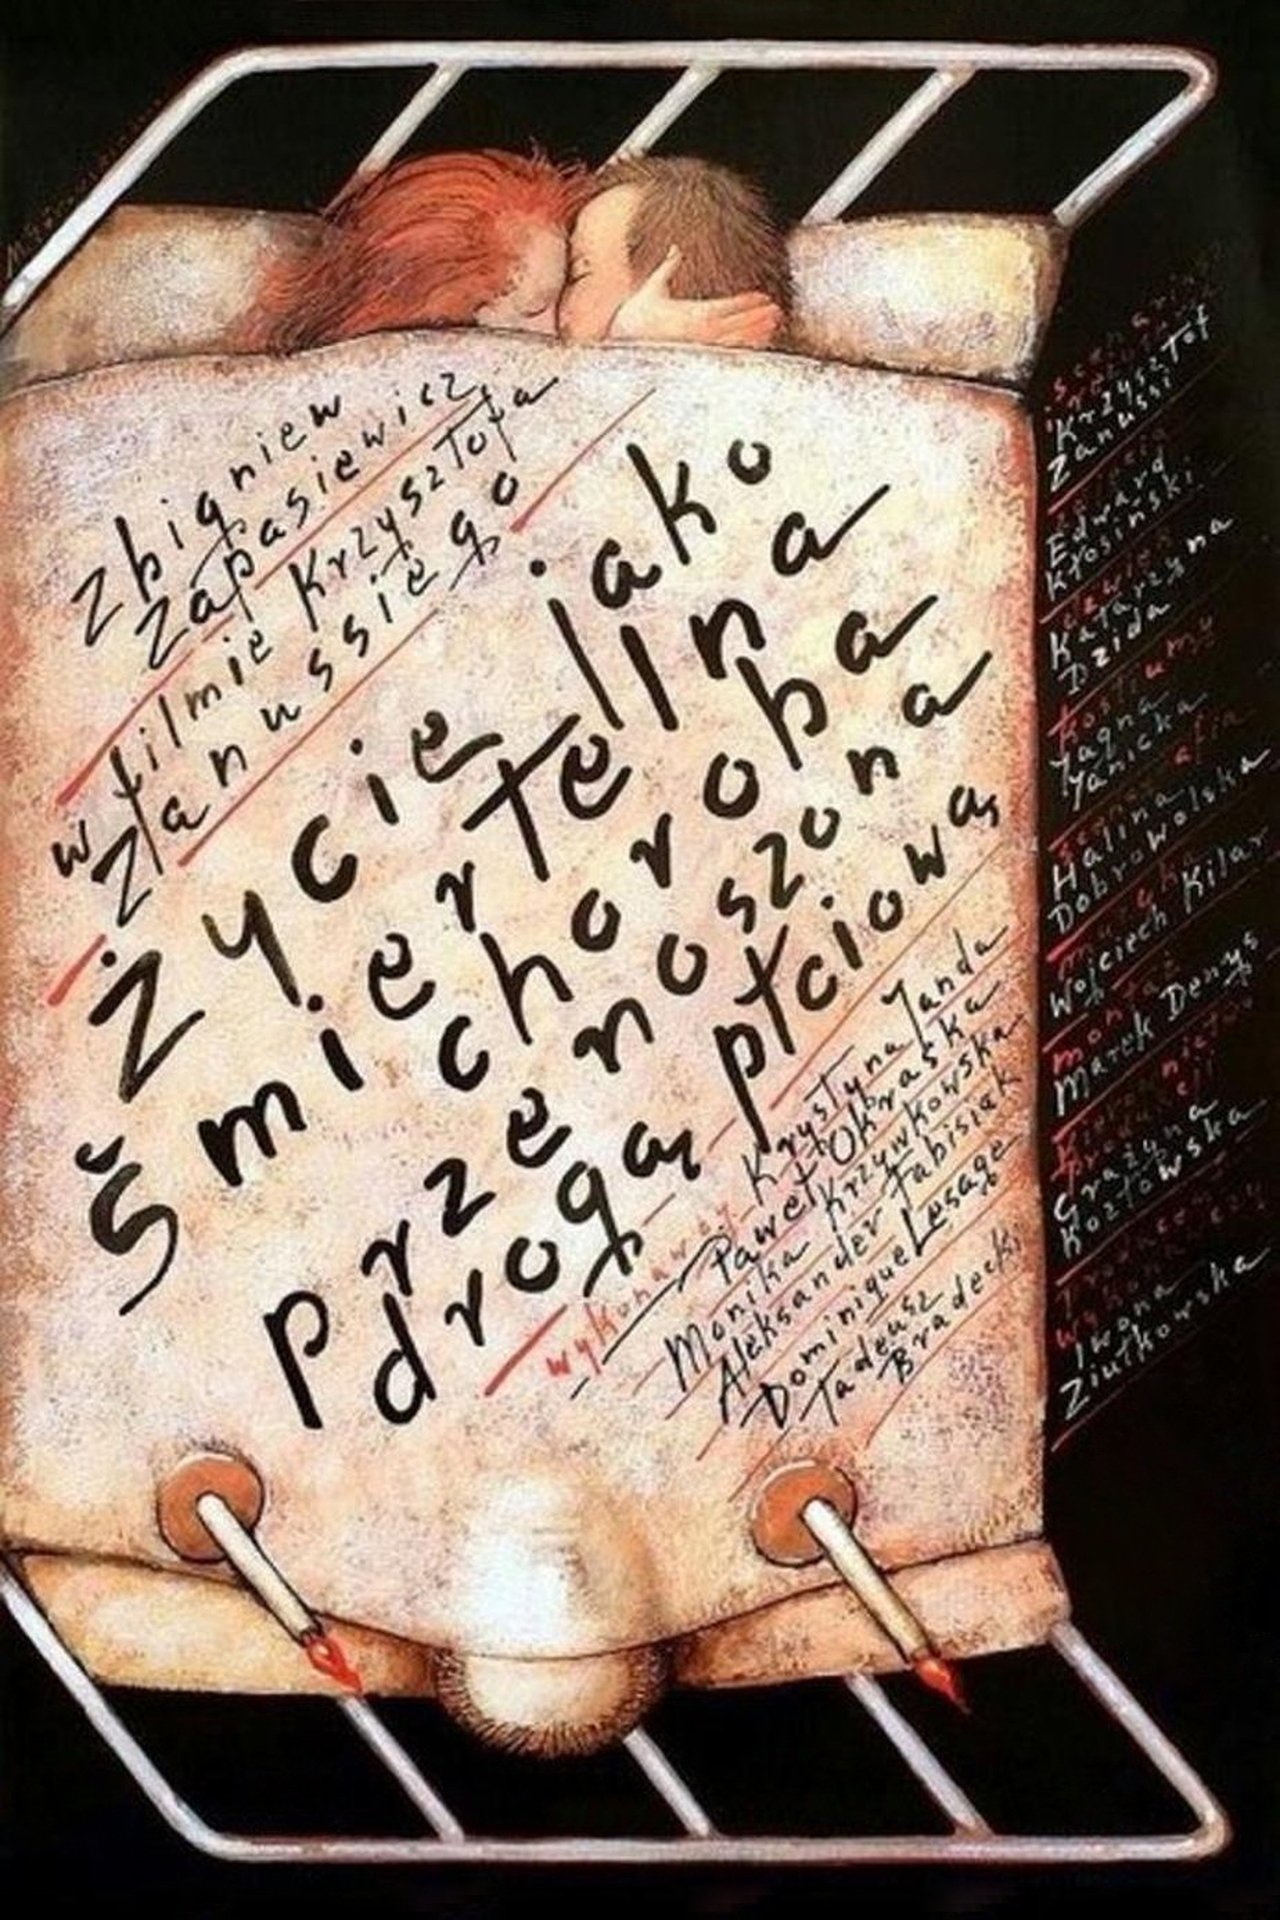 Zbigniew
Zapasiewicz
w filmie Krzysztofa
Zanussiego
Życie jako
Śmiertelna
choroba
Przenoszona
drogą płciową
wykonawcy Krystyna Janda
Paweł Okraska
Monika Krzywkowska
Aleksander Fabisiak
Dominique Lesage
Tadeusz
Bradecki
Krzysztof
Zanussi
Edward
Kłosiński
Katarzyna
Dzida
kostiumy
Jagna
Janicka
Halina
Dobrowolska
muzyka
Wojciech Kilar
montaż
Marek Denys
Grażyna
Kozłowska
Iwona
Ziułkowska